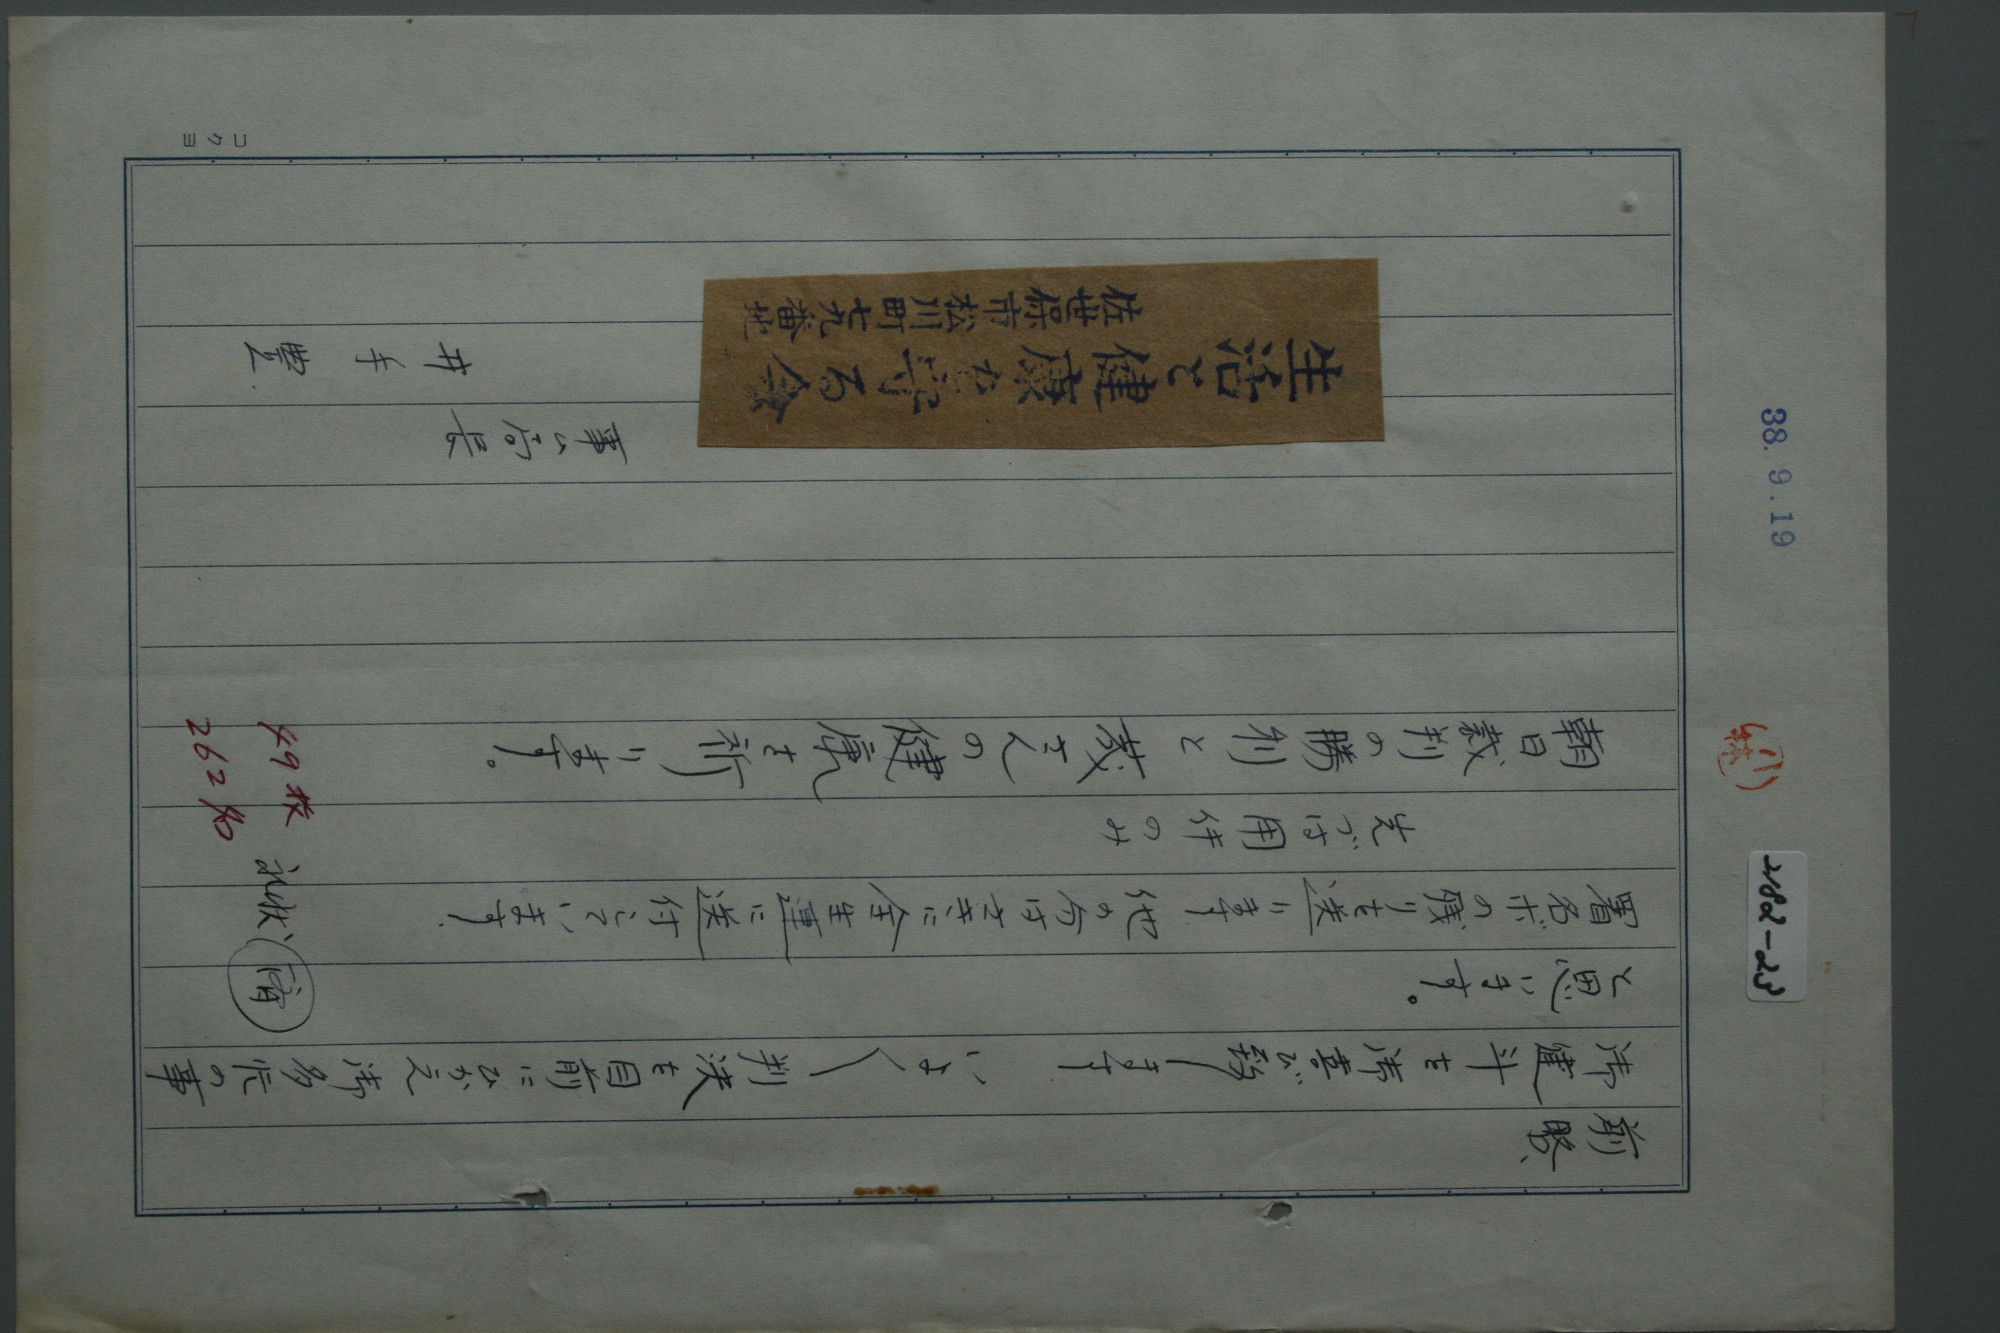 38.9.19
小林
2182-23
前略、
御健斗を御喜び致します いよ〳〵判決を目前にひかえ御多忙の事
と思います。
署名ボの残りを送ります 他の分はさきに全生連に送付しています.
先づは用件のみ
朝日裁判の勝利と茂さんの健康を祈ります。
佐世保市松川町七九番地
生活と健康を守る会
事ム局長
井手 豊
49枚
262名
礼状 済
コクヨ